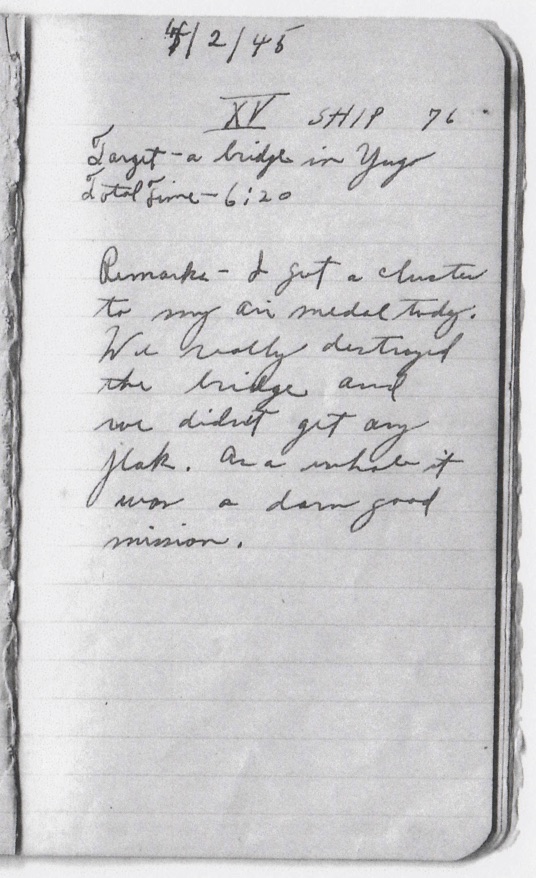 4/2/45
XV SHIP 76
Target - a bridge in Yugo
Total Time - 6:20
Remarks - I got a cluster
to my air medal today.
We really destroyed
the bridge and
we didn't get any
flak. As a whole it
was a darn good
mission.